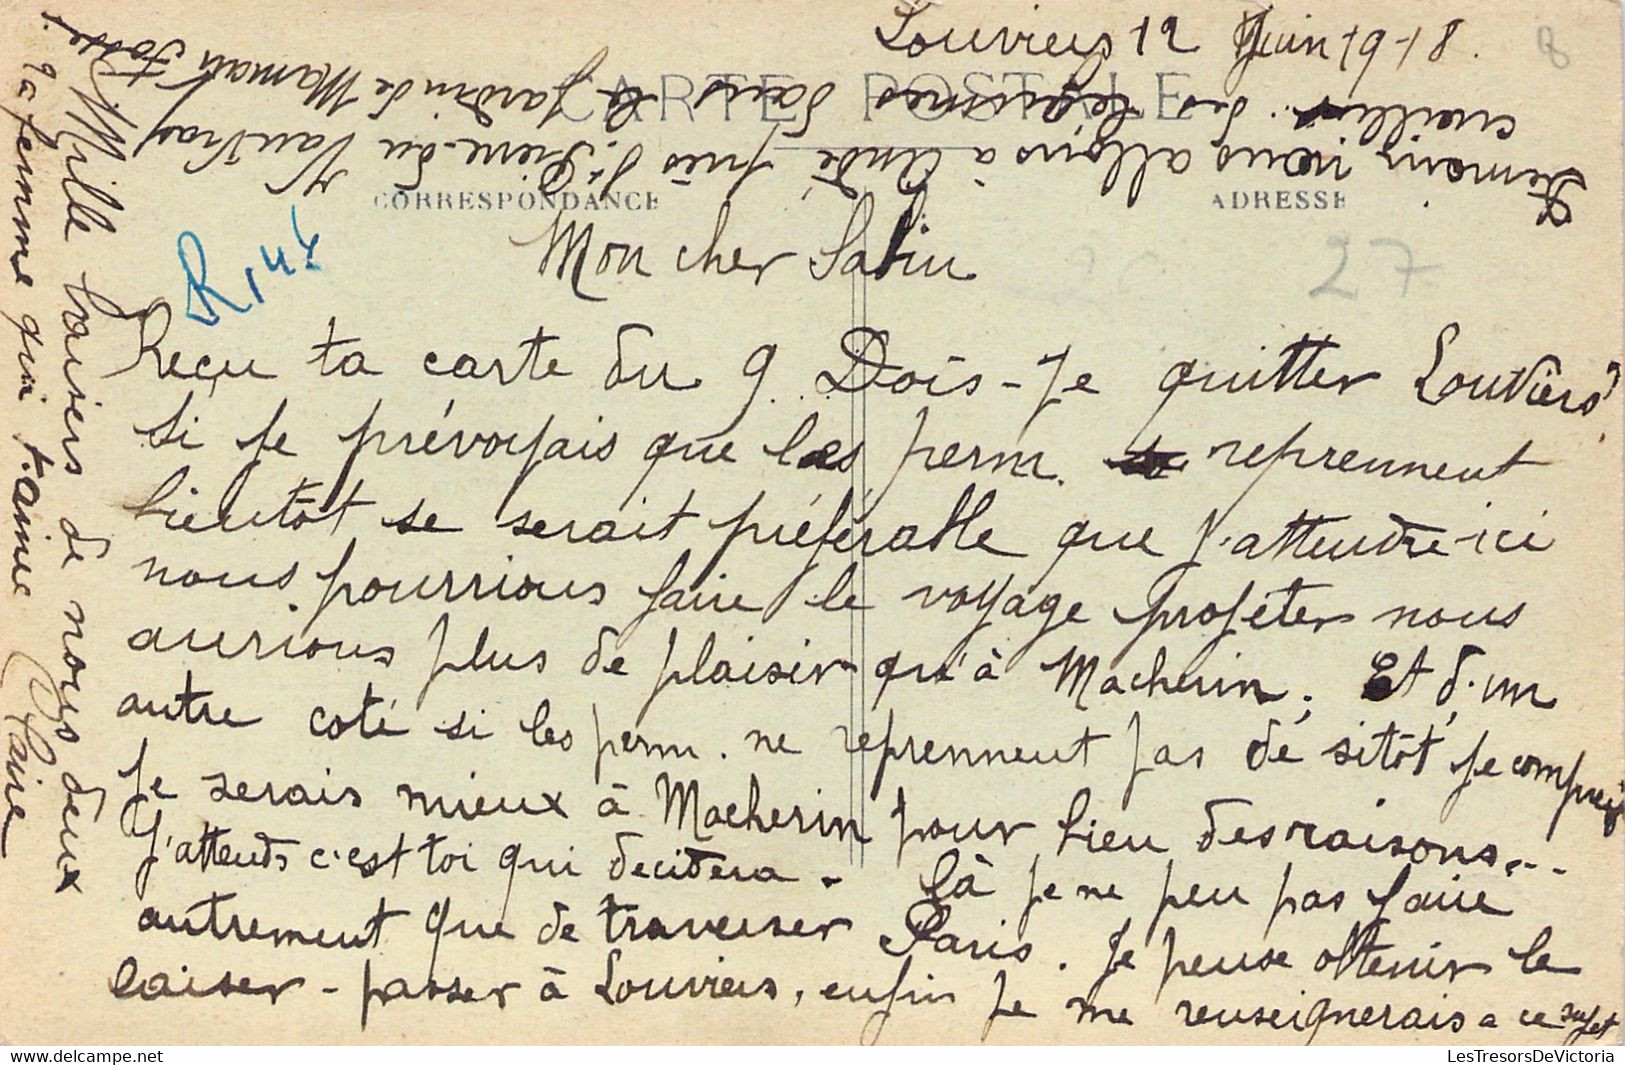 Louviers 12 Juin 1918.
8
CARTE POSTALE
CORRESPONDANCE
ADRESSE
27
Mon cher Sabin
Reçu ta carte du 9. Dois-je quitter Louviers?
Si je prévoyais que les perm. reprennent
bientôt se serait préférable que j'attendre ici
nous pourrions faire le voyage projeter nous
aurions plus de plaisir qu'à Macherin. Et d'un
autre coté si les perm. ne reprennent pas dé sitôt je comprend
je serais mieux à Macherin pour bien des raisons...
J'attends c'est toi qui decidera. Là je ne peu pas faire
autrement que de traverser Paris. Je pense obtenir le
laiser-passer à Louviers, enfin je me renseignerais a ce sujet
Demain nous allons à Andé près St Pierre du Vauvray
cueillir des légumes dans le jardin de Maman Fosse.
Mille baisers de nous deux
Ta femme qui t'aime Claire
LesTresorsDeVictoria
https://www.delcampe.net